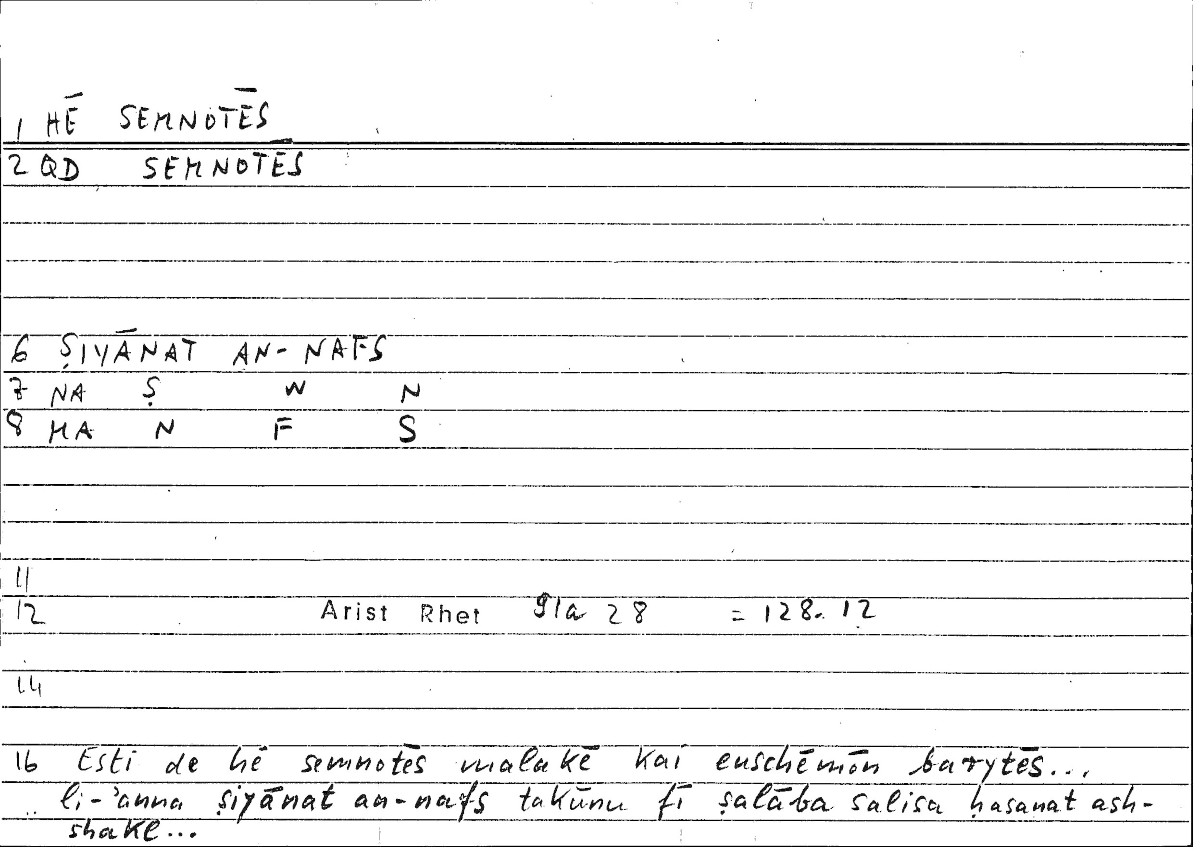 1 HĒ SEMNOTĒS
2 QD SEMNOTĒS
6 ṢIYĀNAT AN-NAFS
7 NA Ṣ W N
8 MA N F S
11
12 Arist Rhet 91a 28 = 128.12
14
16 Esti de hē semnotēs malakē kai euschēmōn barytēs...
li-'anna ṣiyānat an-nafs takūnu fī ṣalāba salisa ḥasanat ash-
shakl...